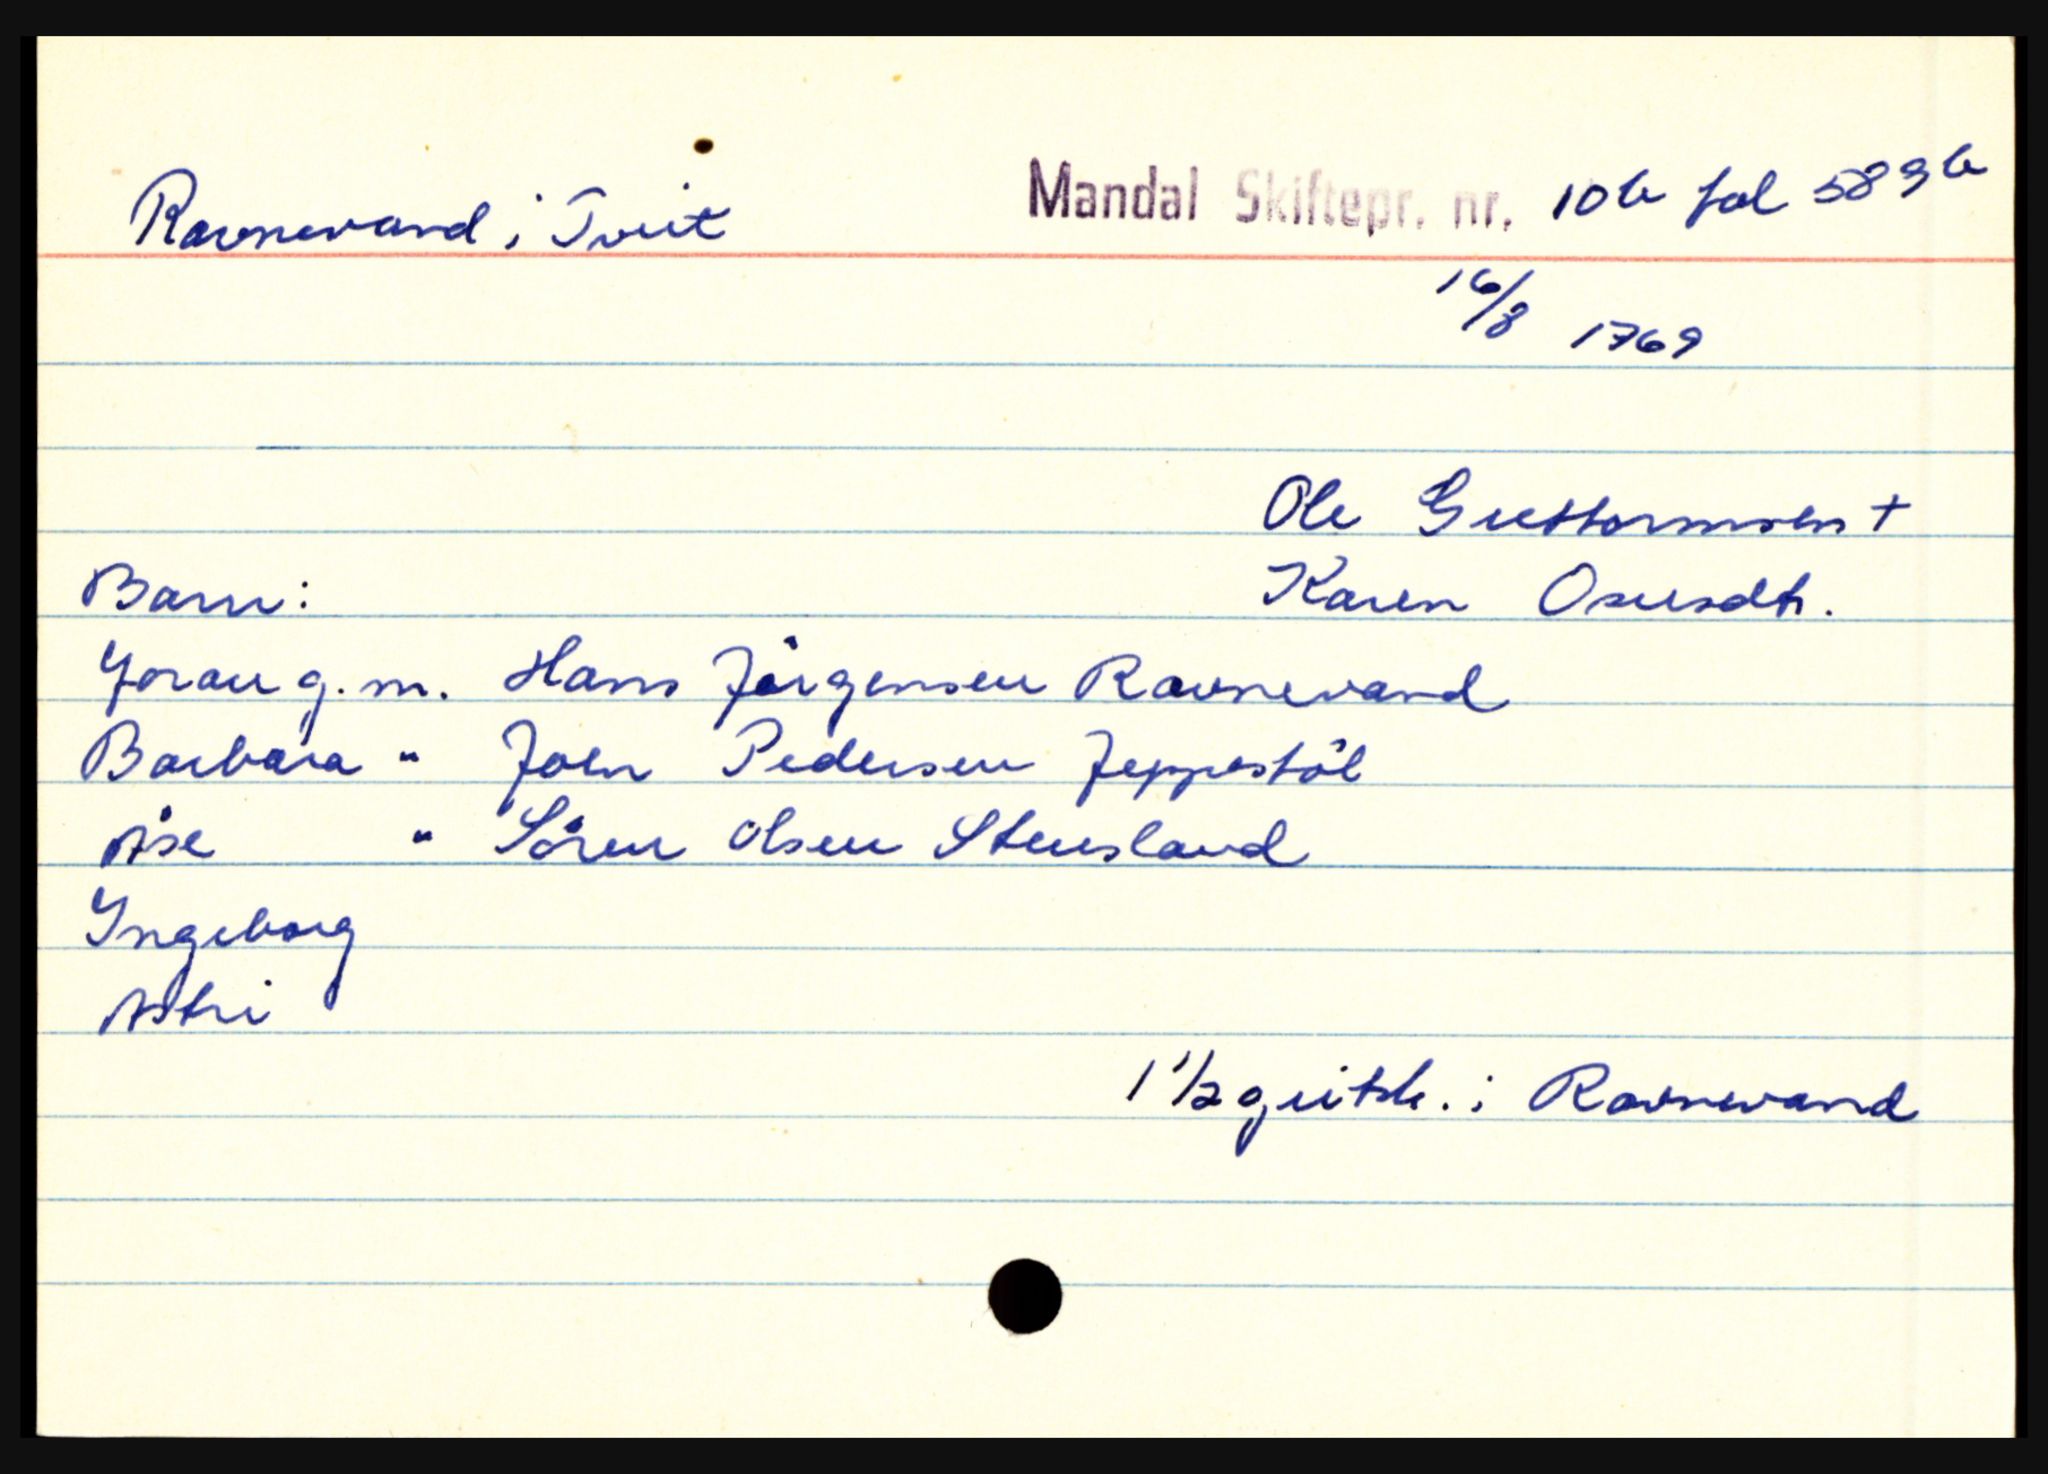 Ravnevand i Tveit Mandal Skiftepr. nr. 10b fol 589b
16/8 1769
Ole Guttormsen +
Karen Osuldsdt.
Barn:
Joran g. m. Hans Jörgensen Ravnevand
Barbara " Joen Pedersen Jeppestöl
Åse " Sören Olsen Stensland
Ingeborg
Astri
1 1/2 geitsk. i Ravnevand